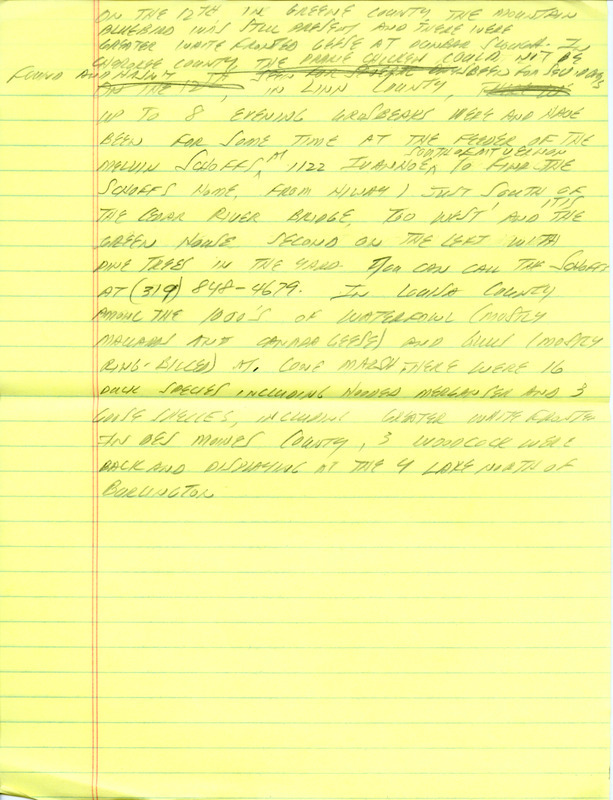 ON THE 12TH IN GREENE COUNTY THE MOUNTAIN
BLUEBIRD WAS STILL PRESENT AND THERE WERE
GREATER WHITE FRONTED GEESE AT DUNBAR SLOUGH. IN
CHEROKEE COUNTY THE PRARIE CHICKEN COULD NOT BE
FOUND AND HADN'T BEEN FOR SEV DAYS
ON THE 12TH, IN LINN COUNTY,
UP TO 8 EVENING GROSBEAKS WERE AND HAVE
BEEN FOR SOME TIME AT THE FEEDER OF THE
SOUTH OF MT VERNON
MELVIN SCHOFFS AT 1122 IVANHOE TO FIND THE
SCHOFFS HOME, FROM HIWAY 1 JUST SOUTH OF
THE CEDAR RIVER BRIDGE, GO WEST AND IT IS THE
GREEN HOUSE SECOND ON THE LEFT WITH
PINE TREES IN THE YARD. YOU CAN CALL THE SCHOFFS
AT (319) 848-4679. IN LOUISA COUNTY
AMONG THE 1000'S OF WATERFOWL (MOSTLY
MALLARDS AND CANADA GEESE) AND GULLS (MOSTLY
RING-BILLED) AT CONE MARSH, THERE WERE 16
DUCK SPECIES INCLUDING HOODED MERGANSER AND 3
GOOSE SPECIES, INCLUDING GREATER WHITE FRONTE
IN DES MOINES COUNTY, 3 WOODCOCK WERE
BACK AND DISPLAYING AT THE 4 LAKE NORTH OF
BURLINGTON